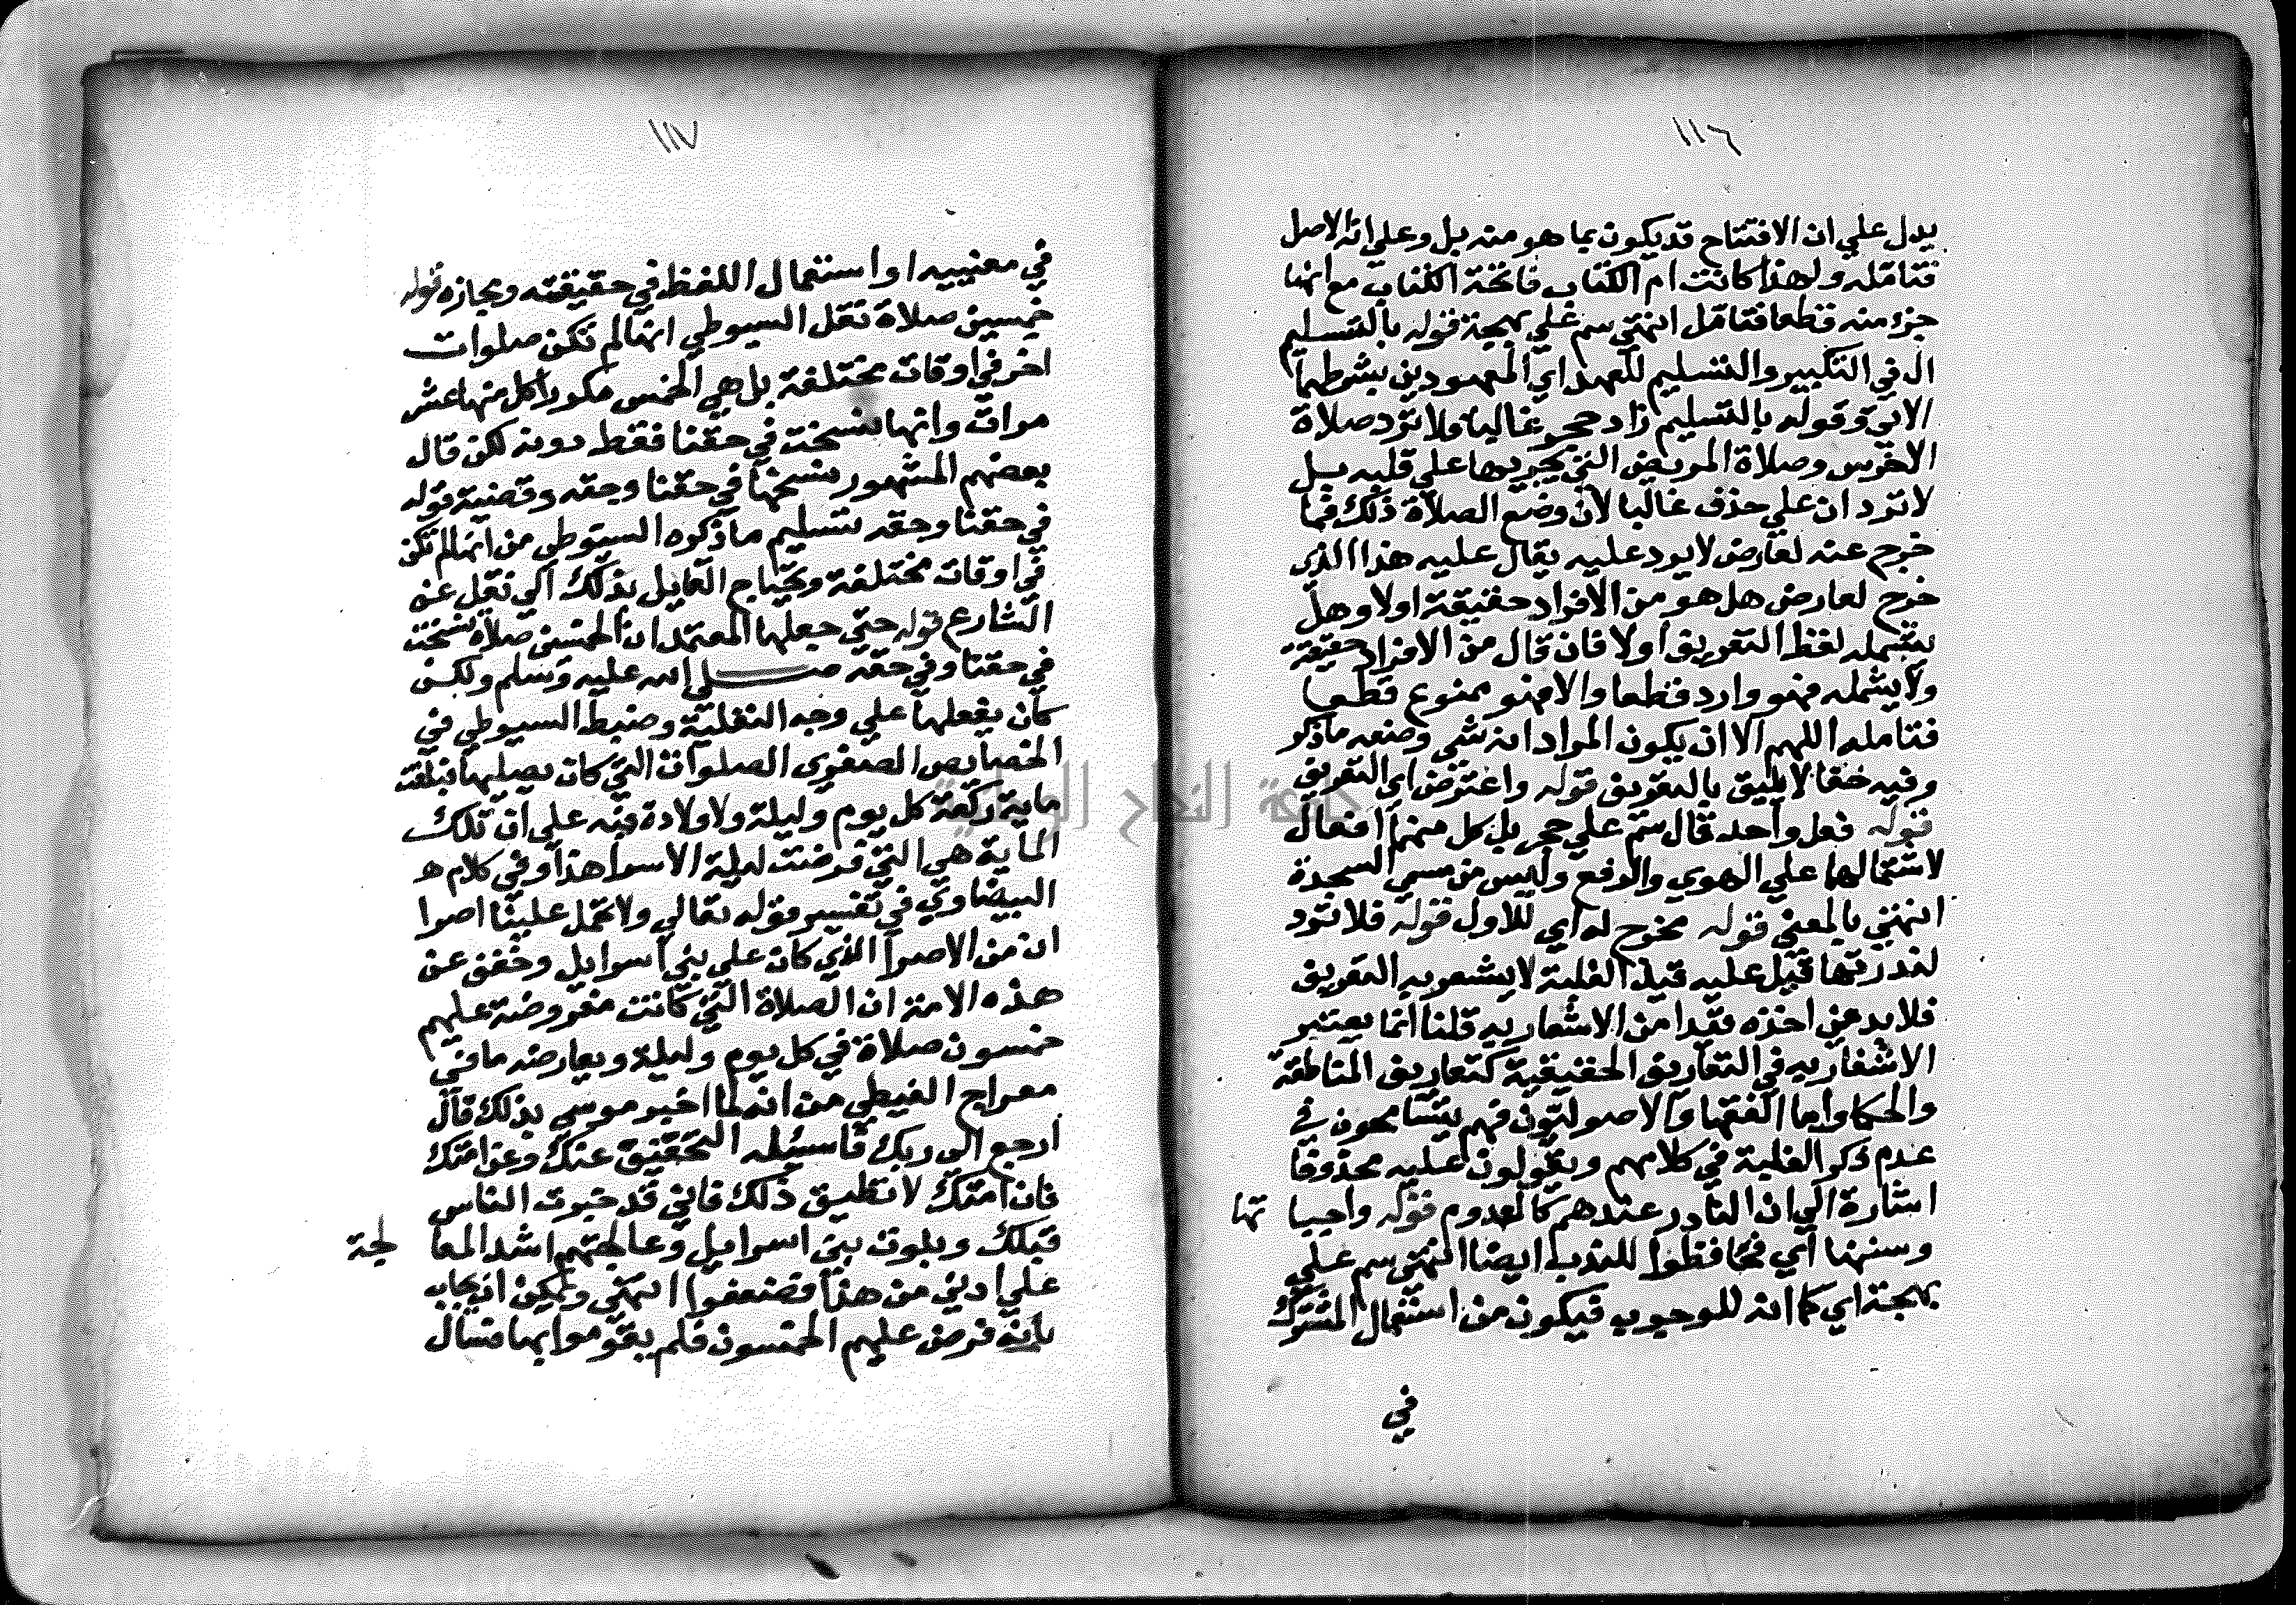 ١١٦
يدل علي ان الافتتاح قد يكون بما هو منه بل وعلي انه الاصل
فتامله ولهذا كانت ام الكتاب فاتحة الكتاب مع انها
جزء منه قطعا فتامل انتهي سم علي بهجة قوله بالتسليم
ال في التكبير والتسليم للعهد اي المعهودين بشرطهما
الاتي وقوله بالتسليم زاد حجر غالبا ولا ترد صلاة
الاخرس وصلاة المريض التي يجريها علي قلبه بل
لا تردان علي حذف غالبا لان وضع الصلاة ذلك فما
خرج عنه لعارض لا يرد عليه يقال عليه هذا الذي
خرج لعارض هل هو من الافراد حقيقة اولا وهل
يشمله لفظ التعريف اولا فان قال من الافراد حقيقة
ولا يشمله فهو وارد قطعا والا فهو ممنوع قطعا
فتامله اللهم الا ان يكون المراد انه شي وضعه ما ذكر
وفيه خفا لا يليق بالتعريف قوله واعترض اي التعريف
قوله فعل واحد قال سم علي حجر بل كل منهما افعال
لاشتمالها علي الهوي والرفع وليس من مسمي السجدة
انتهي بالمعني قوله مخرج له اي للاول قوله فلا ترد
لندرتها قيل عليه قيد الغلبة لا يشعر به التعريف
فلا بد من اخذه قيدا من الاشعار به قلنا انما يعتبر
الاشعار به في التعاريف الحقيقية كتعاريف المناطقة
والحكما واما الفقها والاصوليون فهم يتسامحون في
عدم ذكر الغلبة في كلامهم ويقولون عليه محذوفا
اشارة الي ان النادر عندهم كالعدوم قوله واجبا تها
وسننها اي فحافظوا للندب ايضا انتهي سم علي
بهجة اي كما انه للوجوب فيكون من استعمال المشترك
في
١١٧
في معنييه او استعمال اللفظ في حقيقته ومجازه قوله
خمسين صلاة نقل السيوطي انها لم تكن صلوات
اخر في اوقات مختلفة بل هي الخمس مكررا كل منها عشر
مرات وانها نسخت في حقنا فقط دونه لكن قال
بعضهم المشهور نسخها في حقنا وحقه وقضية قوله
في حقنا وحقه تسليم ما ذكره السيوطي من انها لم تكن
في اوقات مختلفة ويحتاج القايل بذلك الي نقل عن
الشارع قوله حتي جعلها المعتمد ان الخمسين صلاة نسخت
في حقنا وفي حقه صلي الله عليه وسلم ولكن
كان يفعلها علي وجه النفلية وضبط السيوطي في
الخصايص الصغري الصلوات التي كان يصليها فبلغت
ماية ركعة كل يوم وليلة ولا دلالة فيه علي ان تلك
الماية هي التي فرضت ليلة الاسرا هذا وفي كلام ه
البيضاوي في تفسير قوله تعالي ولا تحمل علينا اصرا
ان من الاصر الذي كان علي بني اسرايل وخفف عن
هذه الامة ان الصلاة التي كانت مفروضة عليهم
خمسون صلاة في كل يوم وليلة ويعارضه ما في
معراج الغيطي من انه لما اخبر موسي بذلك قال
ارجع الي ربك فاسئله التخفيف عنك وعن امتك
فان امتك لا تطيق ذلك فاني قد خبرت الناس
قبلك وبلوت بني اسرايل وعالجتهم اشد المعا لجة
علي ادني من هذا فضعفوا انتهي ويمكن ان يجاب
بانه فرض عليهم الخمسون فلم يقوموا بها فسال
جامعة النجاح الوطنية